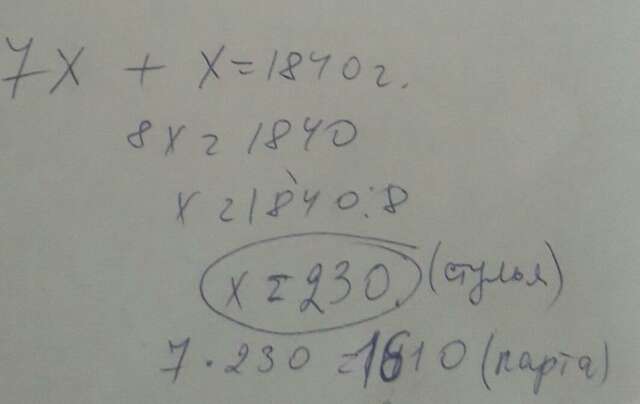 7x + x = 1840 г.
8x = 1840
x = 1840 : 8
x = 230 (стулья)
7 · 230 = 1610 (парта)